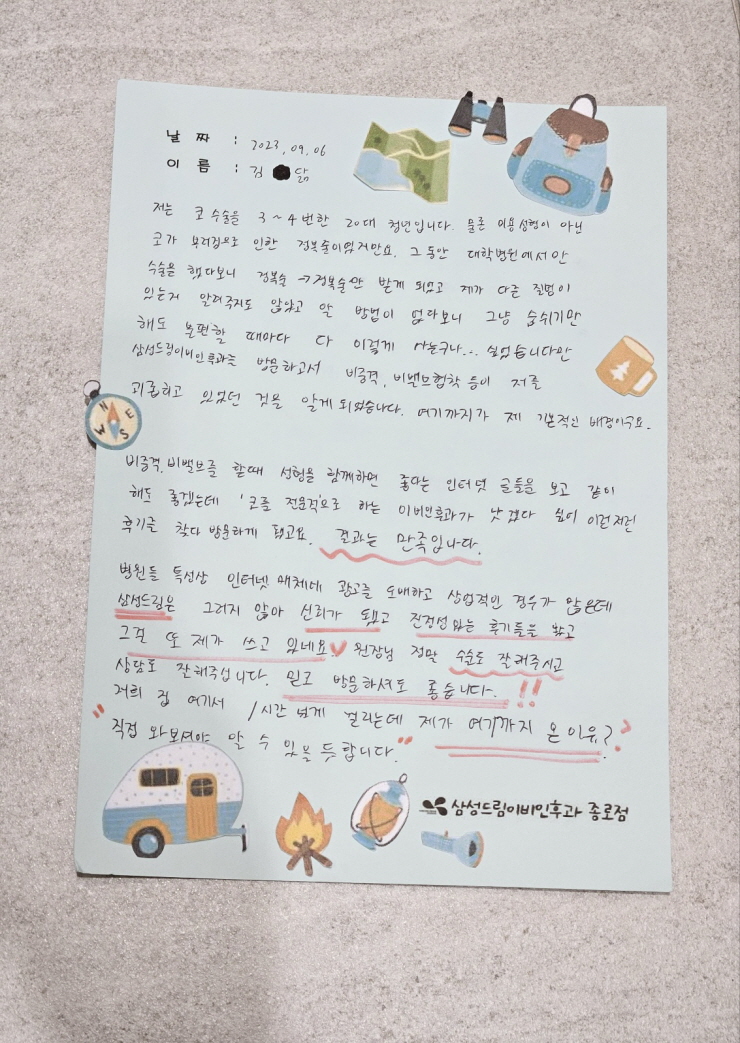 날 짜 : 2023. 09. 06
이 름 : 김 닮
저는 코 수술을 3~4번한 20대 청년입니다. 물론 미용성형이 아닌
코가 부러짐으로 인한 정복술이었지만요. 그동안 대학병원에서만
수술을 했다보니 정복술 → 정복술만 받게 되었고 제가 다른 질병이
있는거 알려주지도 않았고 알 방법이 없다보니 그냥 숨쉬기만
해도 불편할 때마다 다 이렇게 사는구나... 싶었습니다만
삼성드림이비인후과를 방문하고서 비중격, 비밸브협착 등이 저를
괴롭히고 있었던 것을 알게되었습니다. 여기까지가 제 기본적인 배경이구요.
비중격, 비밸브를 할때 성형을 함께하면 좋다는 인터넷 글들을 보고 같이
해도 좋겠는데 '코를 전문적'으로 하는 이비인후과가 낫겠다 싶어 이런저런
후기를 찾다 방문하게 됐고요. 결과는 만족입니다.
병원들 특성상 인터넷 매체에 광고를 도배하고 상업적인 경우가 많은데
삼성드림은 그러지 않아 신뢰가 됐고 진정성있는 후기들을 봤고
그걸 또 제가 쓰고 있네요♥ 원장님 정말 수술도 잘해주시고
상담도 잘해주십니다. 믿고 방문하셔도 좋습니다. !!
저희 집 여기서 1시간 넘게 걸리는데 제가 여기까지 온 이유?
"직접 와보셔야 알 수 있을 듯합니다."
삼성드림이비인후과 종로점
N
E
S
W